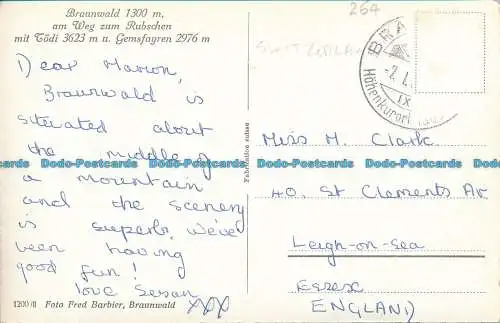 Braunwald 1300 m,
am Weg zum Rubschen
mit Tödi 3623 m u. Gemsfayren 2976 m
Dear Marion,
Braunwald is
situated about
the middle of
a mountain
and the scenery
is superb. We've
been having
good fun!
love Susan
xxx
1200/II Foto Fred Barbier, Braunwald
Fabrication suisse
264
SWITZERLAND
BRA
-7.
IX
Höhenkurort
Miss M. Clark
40, St Clements Av
Leigh-on-sea
Essex
ENGLAND
Dodo-Postcards Dodo-Postcards Dodo-Postcards Dodo-Postcards Dodo-Postcards
Dodo-Postcards Dodo-Postcards Dodo-Postcards Dodo-Postcards Dodo-Postcards